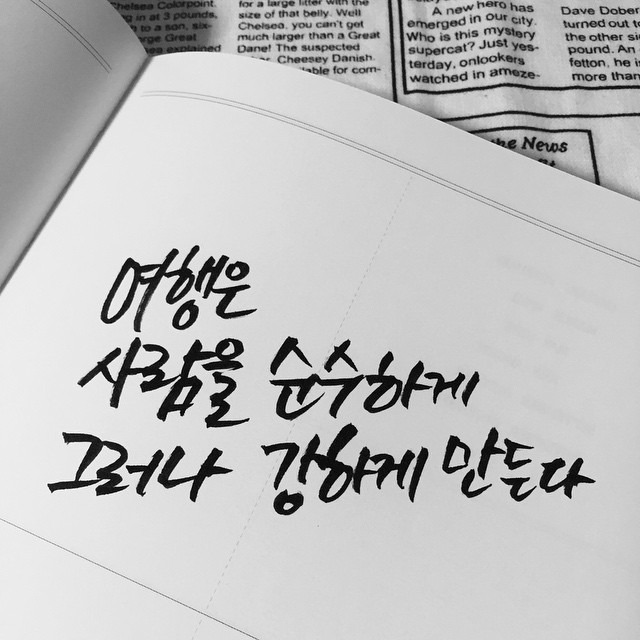 Chelsea Colorpoint.
g in at 3 pounds,
to a son, six-
rge Great
explained
for a large litter with the
size of that belly. Well
Chelsea, you can't get
much larger than a Great
Dane! The suspected
Cheesey Danish.
ble for com-
A new hero has
emerged in our city.
Who is this mystery
supercat? Just yes-
terday, onlookers
watched in ameze-
Dave Dober
turned out t
the other si
pound. An
fetton, he is
more than
he News
여행은
사람을 순수하게
그러나 강하게 만든다